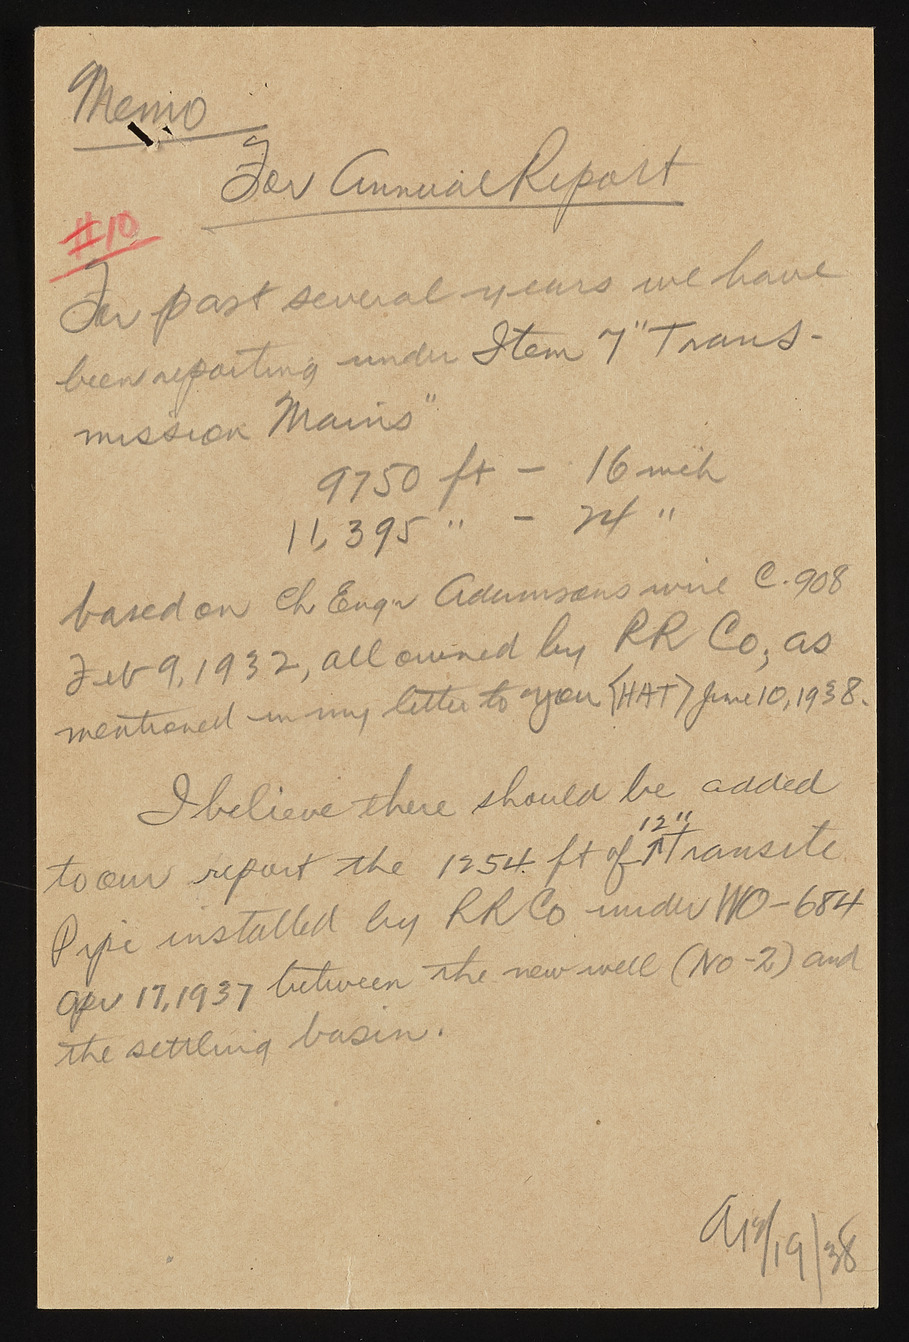 Memo
For Annual Report
#10
For past several years we have
been reporting under Item 7 "Trans-
mission Mains"
9750 ft - 16 inch
11,395 " - 24 "
based on Ch Engr Adamsons wire C. 908
Feb 9, 1932, all owned by RR Co, as
mentioned in my letter to you (HAT) June 10, 1938.
I believe there should be added
12"
to our report the 1254 ft of ↑Transite
Pipe installed by RR Co under WO-684
Apr 17, 1937 between the new well (No-2) and
the settling basin.
/19/38